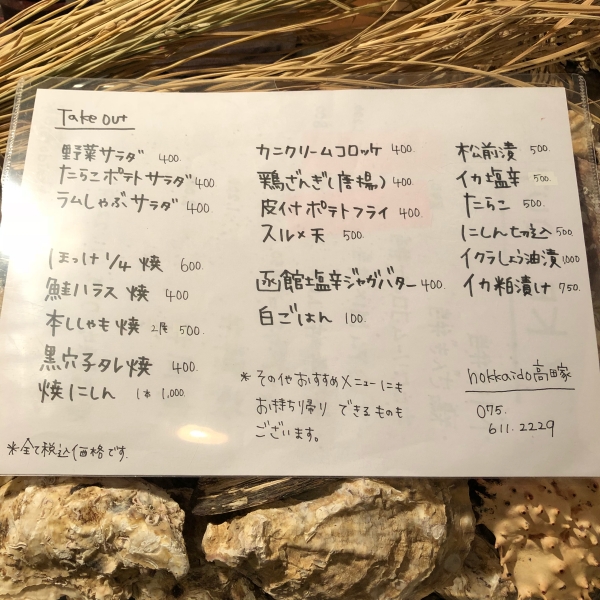 Take out
野菜サラダ 400.
たらこポテトサラダ 400
ラムしゃぶサラダ 400.
ほっけ 1/4 焼 600.
鮭ハラス 焼 400
本ししゃも焼 2尾 500.
黒穴子タレ焼 400.
焼にしん 1本 1,000.
*全て税込価格です.
カニクリームコロッケ 400.
鶏ざんぎ(唐揚) 400.
皮付ポテトフライ 400.
スルメ天 500.
函館塩辛ジャガバター 400.
白ごはん 100.
* その他おすすめメニューにも
お持ち帰り できるものも
ございます。
松前漬 500.
イカ塩辛 500.
たらこ 500.
にしん切込 500
イクラしょう油漬 1,000
イカ粕漬け 750.
hokkaido高田家
075.
611.2229